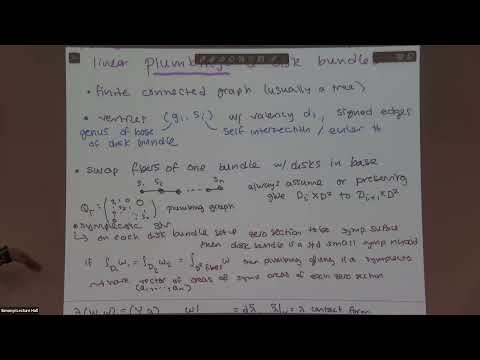 linear plumbings disk bundles
• finite connected graph (usually a tree)
• vertices (gi, si) w/ valency di, signed edges
genus of base of disk bundle
self intersection / euler #
• swap fibers of one bundle w/ disks in base
s1 s2 ... sn
plumbing graph
always assume or preserving
give Di × D² to Di+1 × D²
QΓ =
• symplectic str
↳ on each disk bundle setup zero section to be symp surface
then disk bundle is a std small symp nbhd
if ∫D1 ω1 = ∫D2 ω2 = ∫D² fiber ω then plumbing gluing is a symplecto
have vector of areas of symp areas of each zero section
(a1, ..., an)
contact form
Simonyi Lecture Hall